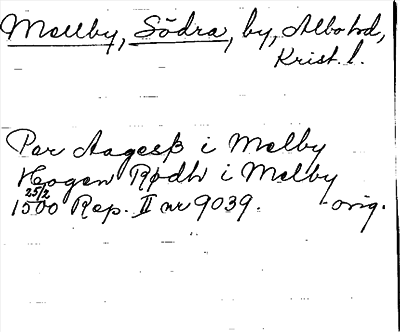 Mellby, Södra, by, Albo hd,
Krist. l.
Per Aagesß i Melby
Hogen Rødh i Melby
25/2
1500 Rep. II nr 9039. orig.